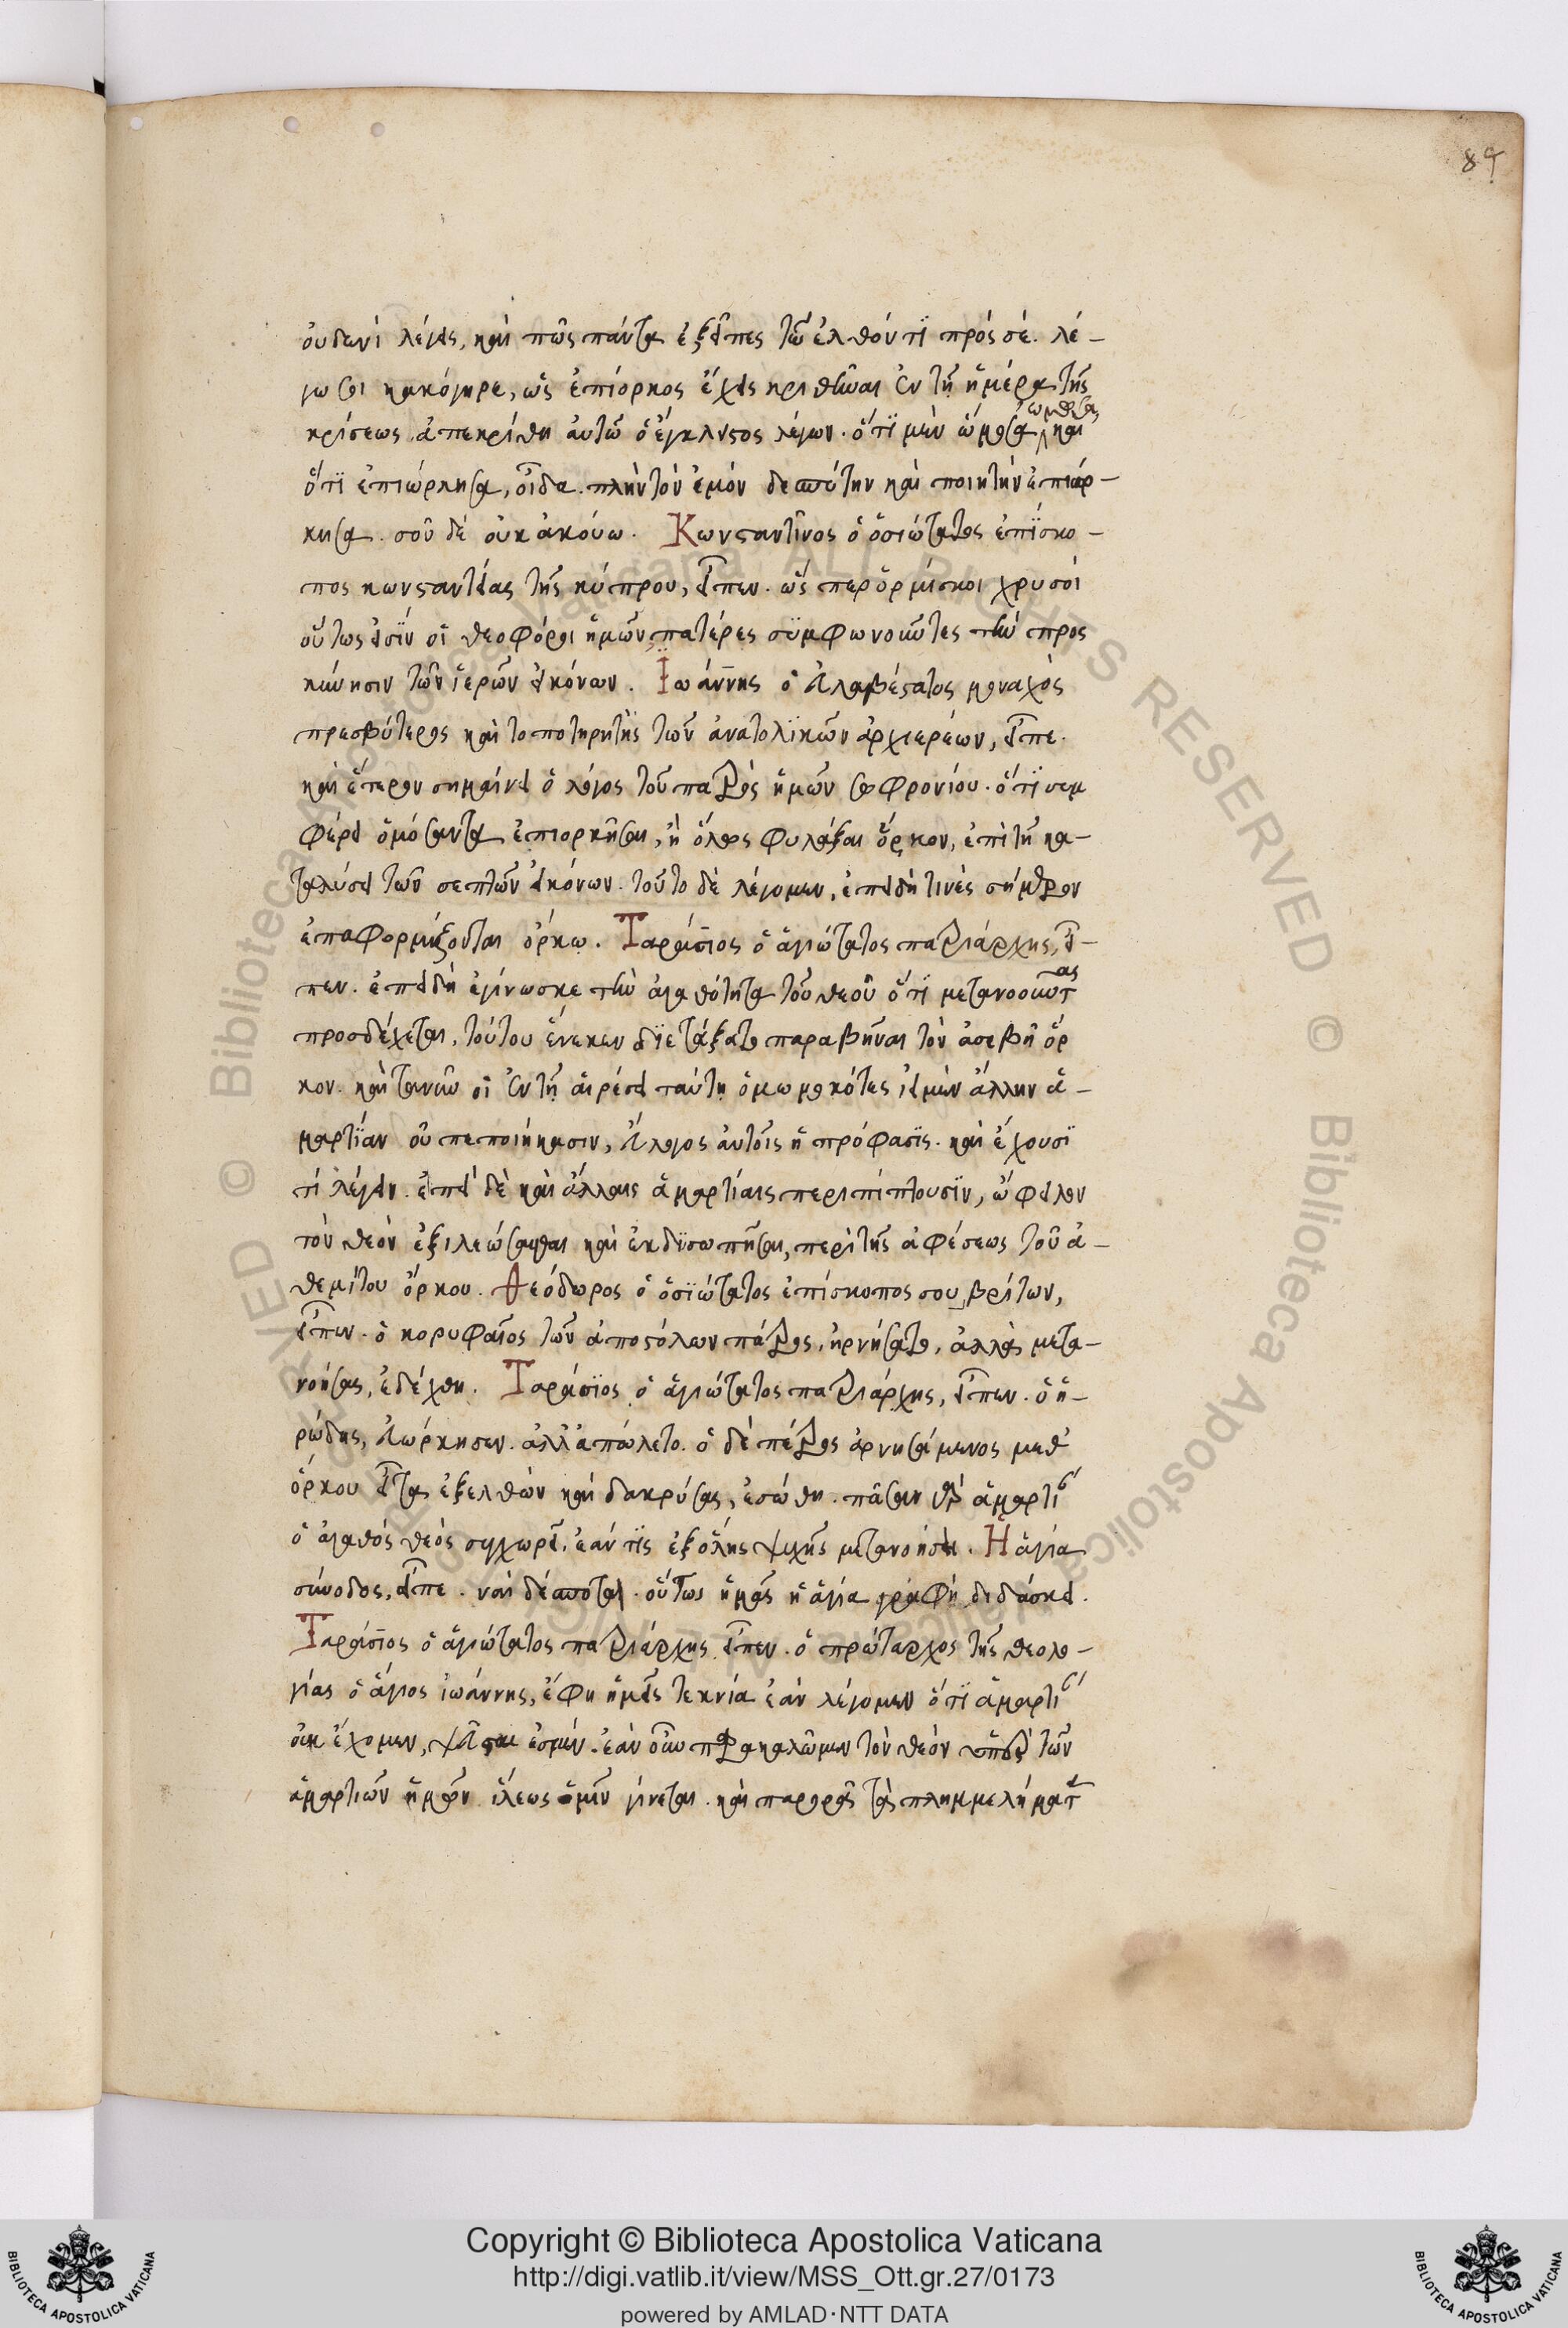 89
οὐδενὶ λέγεις, καὶ πῶς πάντα ἐξεῖπες τῶ ἐλθόντι πρός σέ. λέ-
γω σοι κακόγηρε, ὡς ἐπίορκος ἔχεις κριθῆναι ἐν τῆ ἡμέρα τῆς
κρίσεως. ἀπεκρίθη αὐτῶ ὁ ἔγκλειστος λέγων. ὅτι μὲν ὤμοσα καὶ
ὅτι ἐπιώρκησα, οἶδα. πλὴν τὸν ἐμόν δεσπότην καὶ ποιητὴν ἐπιώρ-
κησα. σοῦ δὲ οὐκ ἀκούω. Κωνσταντῖνος ὁ ὁσιώτατος ἐπίσκο-
πος κωνσταντίας τῆς κύπρου, εἶπεν. ὥσπερ ὁρμίσκοι χρυσοί
οὕτως εἰσίν οἱ θεοφόροι ἡμῶν πατέρες συμφωνοῦντες τὴν προς
κύνησιν τῶν ἱερῶν εἰκόνων. Ἰωάννης ὁ εὐλαβέστατος μοναχὸς
πρεσβύτερος καὶ τοποτηρητὴς τῶν ἀνατολικῶν ἀρχιερέων, εἶπε.
καὶ ἕτερον σημαίνει ὁ λόγος τοῦ πατρὸς ἡμῶν σοφρονίου. ὅτι συμ
φέρει ὁμόσαντα ἐπιορκῆσαι, ἢ ὅλως φυλάξαι ὅρκον, ἐπὶ τῆ κα-
ταλύσει τῶν σεπτῶν εἰκόνων. τοῦτο δὲ λέγομεν, ἐπειδὴ τινὲς σήμερον
ἐπαφορμίζονται ὅρκω. Ταράσιος ὁ ἁγιώτατος πατριάρχης, εἶ-
πεν. ἐπειδὴ ἐγίνωσκε τὴν ἀγαθότητα τοῦ θεοῦ ὅτι μετανοοῦντας
προσδέχεται, τούτου ἕνεκεν διετάξατο παραβῆναι τὸν ἀσεβῆ ὅρ
κον. καὶ τανῦν οἱ ἐν τῆ αἱρέσει ταύτη ὁμωμοκότες εἰ μὲν ἄλλην ἁ-
μαρτίαν οὐ πεποιήκασιν, εὔλογος αὐτοῖς ἡ πρόφασις. καὶ ἔχουσι
τί λέγειν. ἐπεί δὲ καὶ ἄλλαις ἁμαρτίαις περιπίπτουσιν, ὤφειλον
τὸν θεὸν ἐξιλεώσασθαι καὶ ἐκδυσωπῆσαι, περὶ τῆς ἀφέσεως τοῦ ἀ-
θεμίτου ὅρκου. Θεόδωρος ὁ ὁσιώτατος ἐπίσκοπος σουβρίτων,
εἶπεν. ὁ κορυφαῖος τῶν ἀποστόλων πέτρος, ἠρνήσατο, ἀλλὰ μετα-
νοήσας, ἐδέχθη. Ταράσιος ὁ ἁγιώτατος πατριάρχης, εἶπεν. ὁ ἡ-
ρώδης, εὐώρκησεν. ἀλλ' ἀπώλετο. ὁ δὲ πέτρος ἀρνησάμενος μεθ'
ὅρκου εἶτα ἐξελθὼν καὶ δακρύσας, ἐσώθη. πᾶσαν γὰρ ἁμαρτί
ὁ ἀγαθός θεὸς συγχωρεῖ, ἐάν τις ἐξ ὅλης ψυχῆς μετανοήσει. Ἡ ἁγία
σύνοδος, εἶπε. ναὶ δέσποτα. οὕτως ἡμᾶς ἡ ἁγία γραφὴ διδάσκει.
Ταράσιος ὁ ἁγιώτατος πατριάρχης εἶπεν. ὁ πρώταρχος τῆς θεολο-
γίας ὁ ἅγιος ἰωάννης, ἔφη ἡμεῖς τεκνία ἐάν λέγομεν ὅτι ἁμαρτί
οὐκ ἔχομεν, ψεῦσται ἐσμέν. ἐὰν οὖν παρακαλῶμεν τὸν θεόν ὑπὲρ τῶν
ἁμαρτιῶν ἡμῶν ἵλεως ἡμῖν γίνεται. καὶ παρορᾶ τὰ πλημμελήματ
Copyright © Biblioteca Apostolica Vaticana
http://digi.vatlib.it/view/MSS_Ott.gr.27/0173
powered by AMLAD·NTT DATA